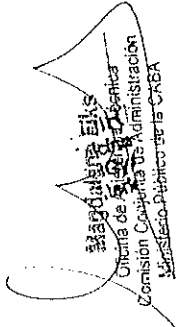 Magdalena Elks
Oficina de Técnica
Comisión Conjunta de Administración
Ministerio Público de la CABA